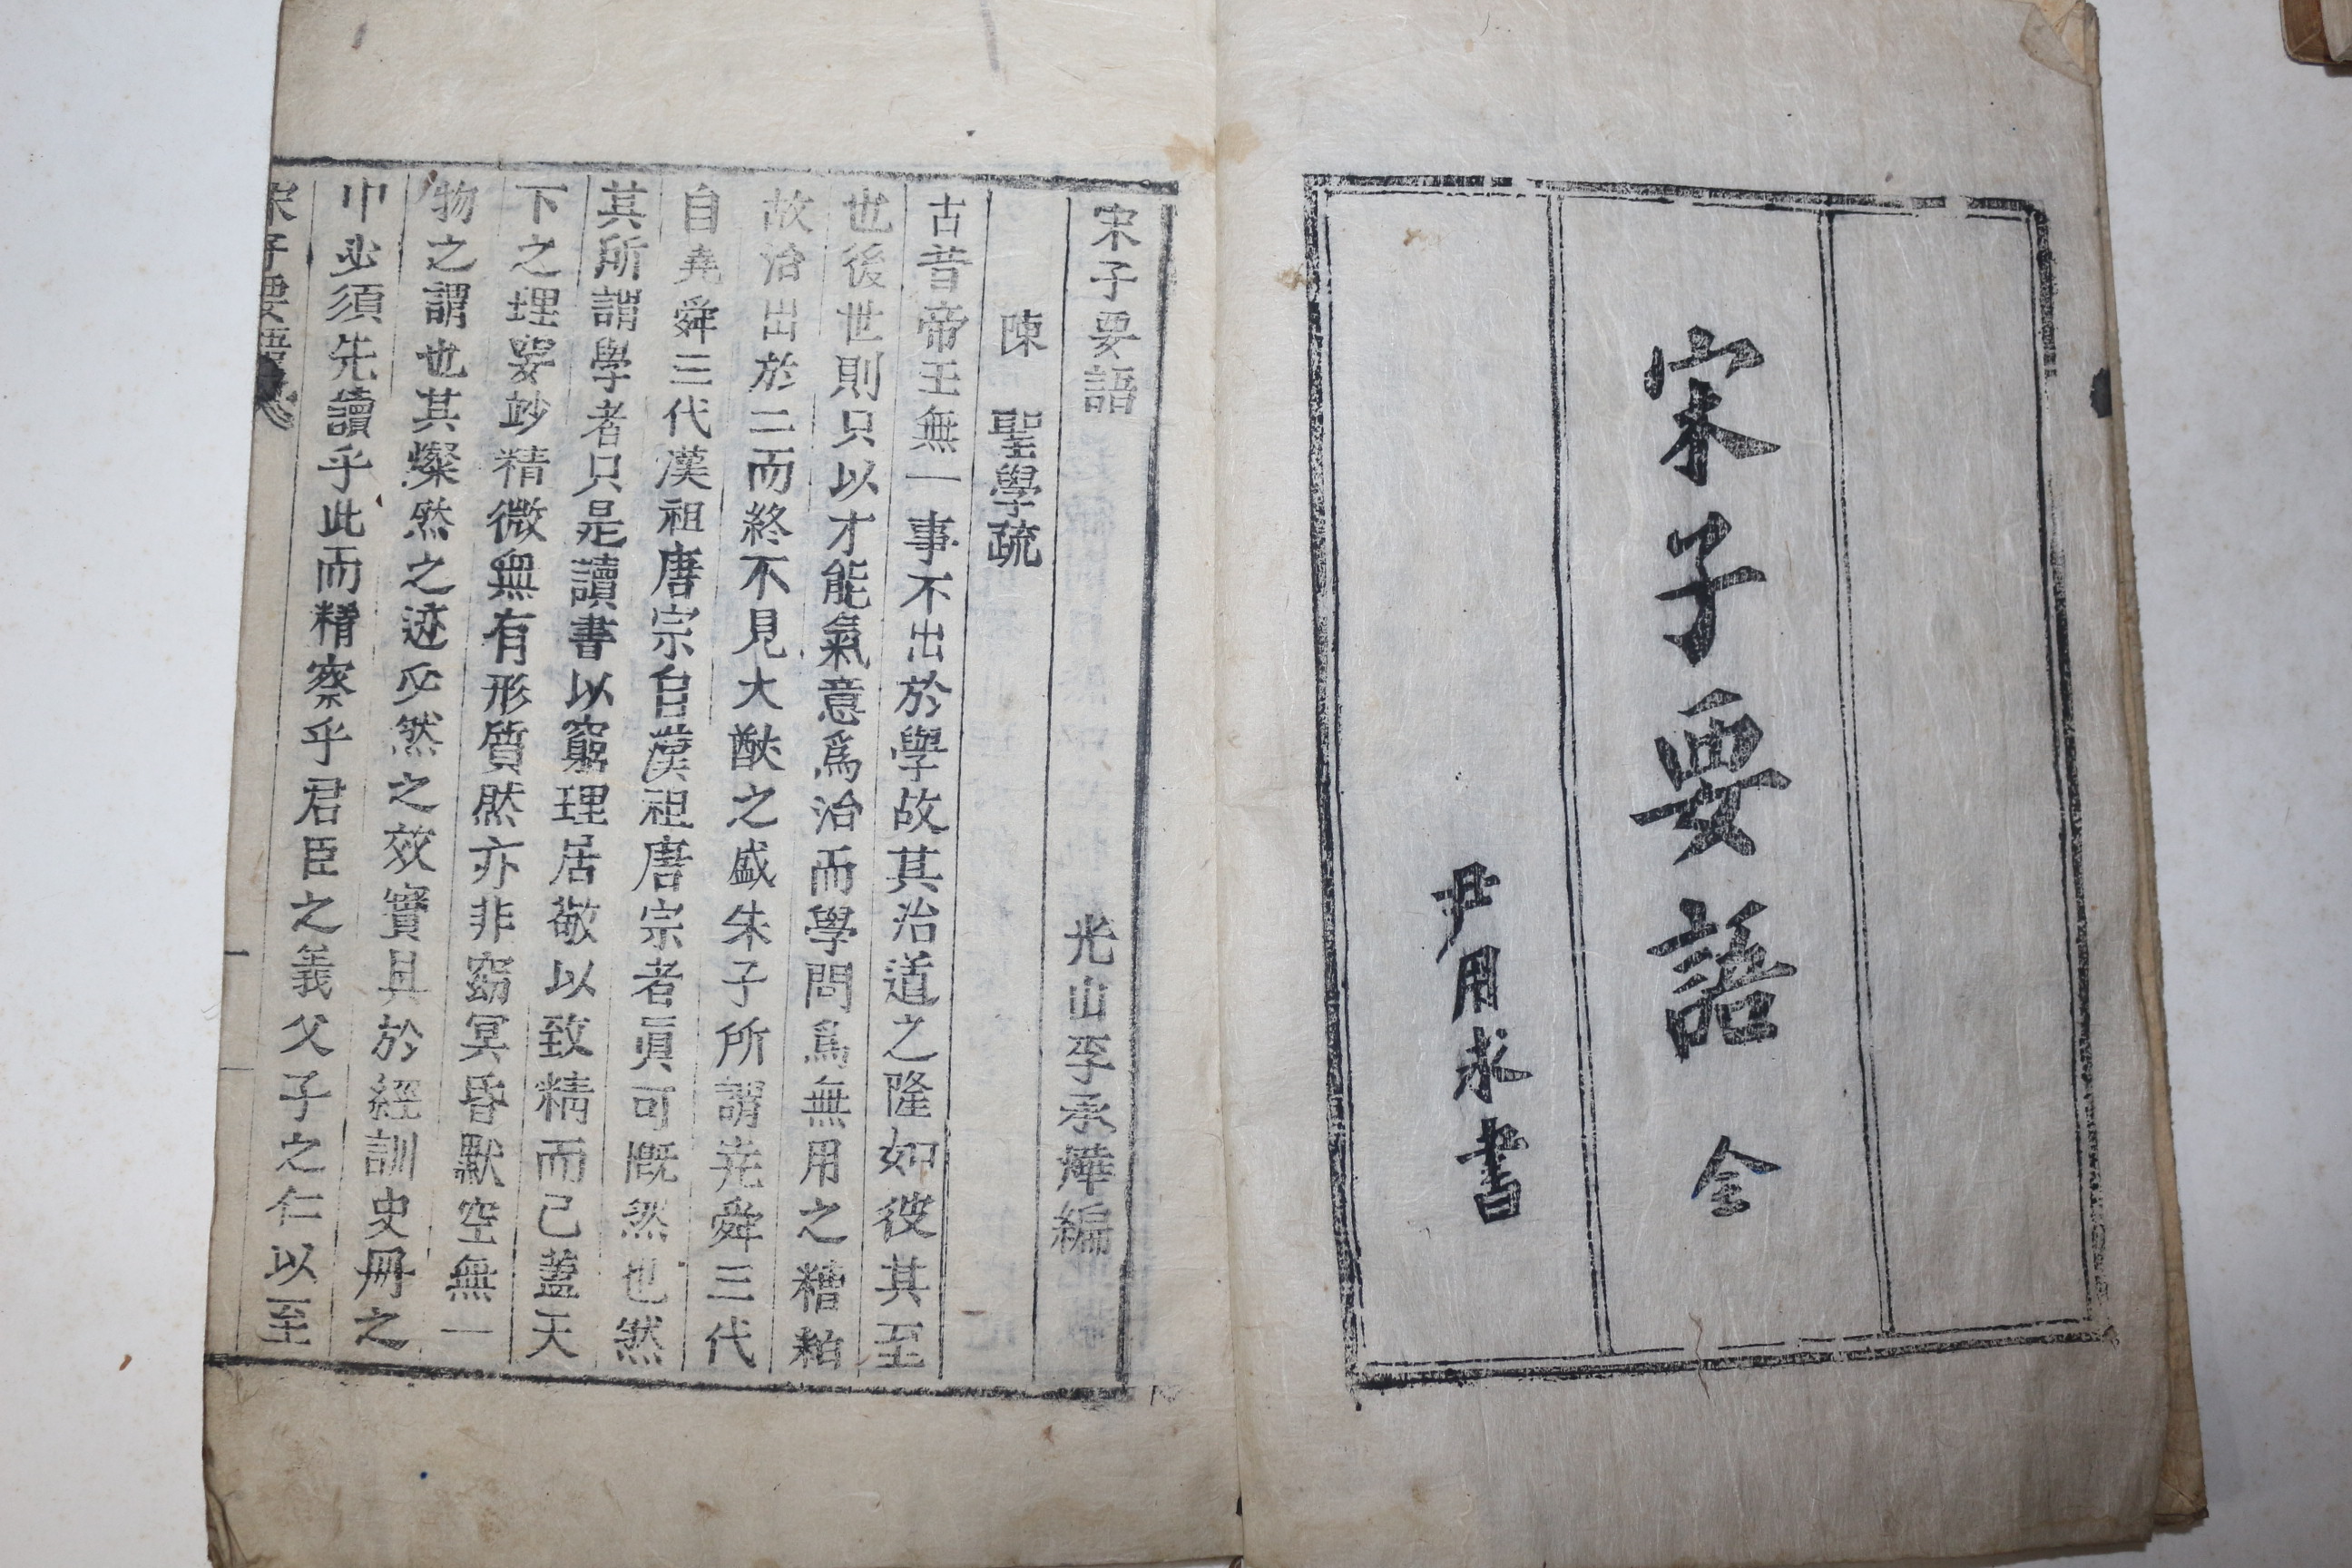 宋子要語 全
尹用求書
宋子要語 光山李承燁編
陳 聖學疏
古昔帝王無一事不出於學故其治道之隆如彼其至
也後世則只以才能氣意爲治而學問爲無用之糟粕
故治出於二而終不見大猷之盛朱子所謂堯舜三代
自堯舜三代漢祖唐宗自漢祖唐宗者眞可慨然也然
其所謂學者只是讀書以窮理居敬以致精而已蓋天
下之理要妙精微無有形質然亦非窈冥昏默空無一
物之謂也其燦然之迹必然之效實具於經訓史冊之
中必須先讀乎此而精察乎君臣之義父子之仁以至
宋子要語
一